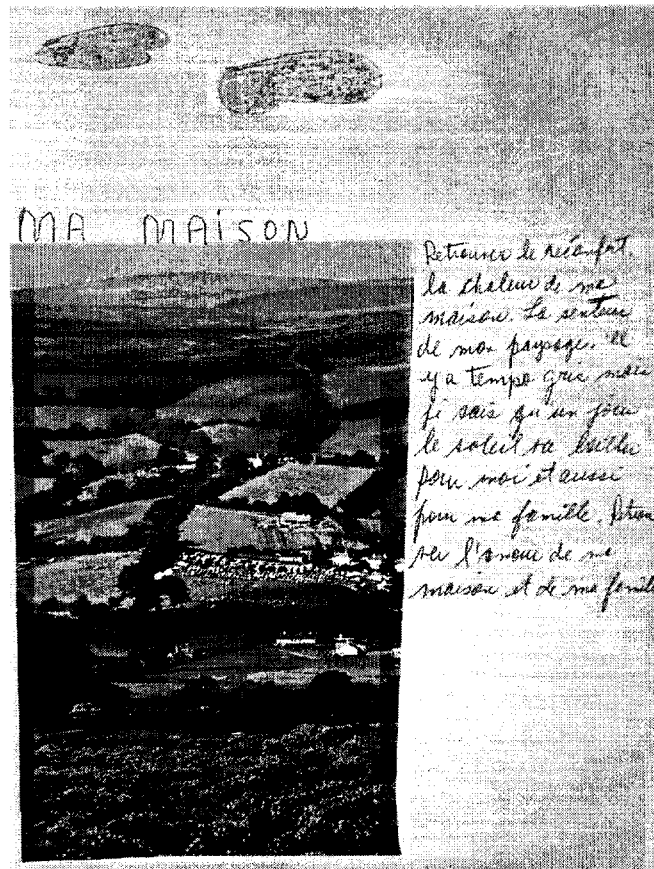 MA MAISON
Retrouver le réconfort,
la chaleur de ma
maison. La senteur
de mon paysage. Il
y a temps gris mais
je sais qu'un jour
le soleil va briller
pour moi et aussi
pour ma famille. Retrou
ver l'amour de ma
maison et de ma famille